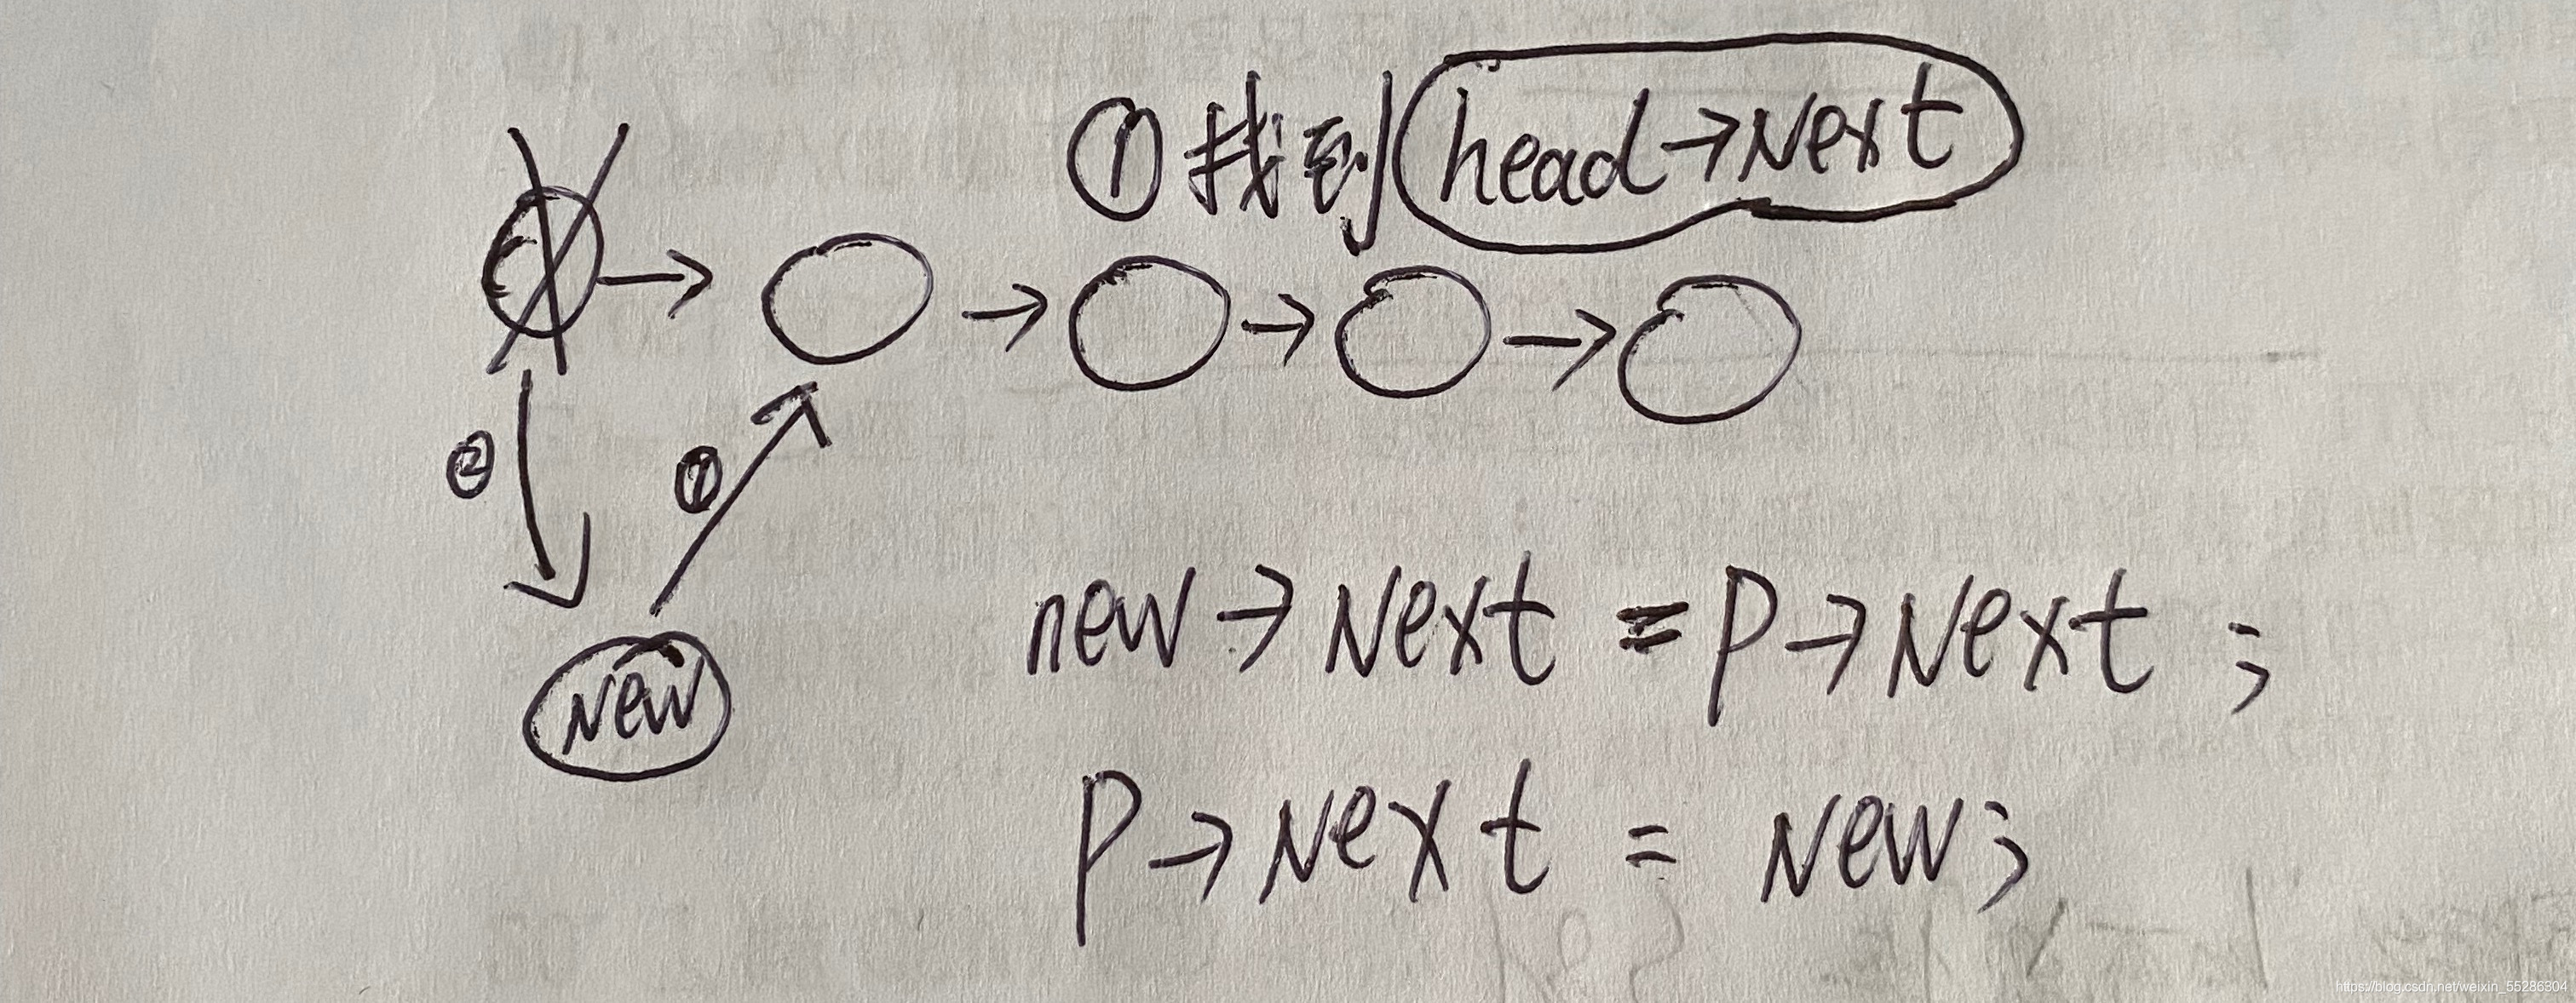 ① 找到 head→Next
②
①
New
new→Next = P→Next ;
P→Next = New;
https://blog.csdn.net/weixin_55286304